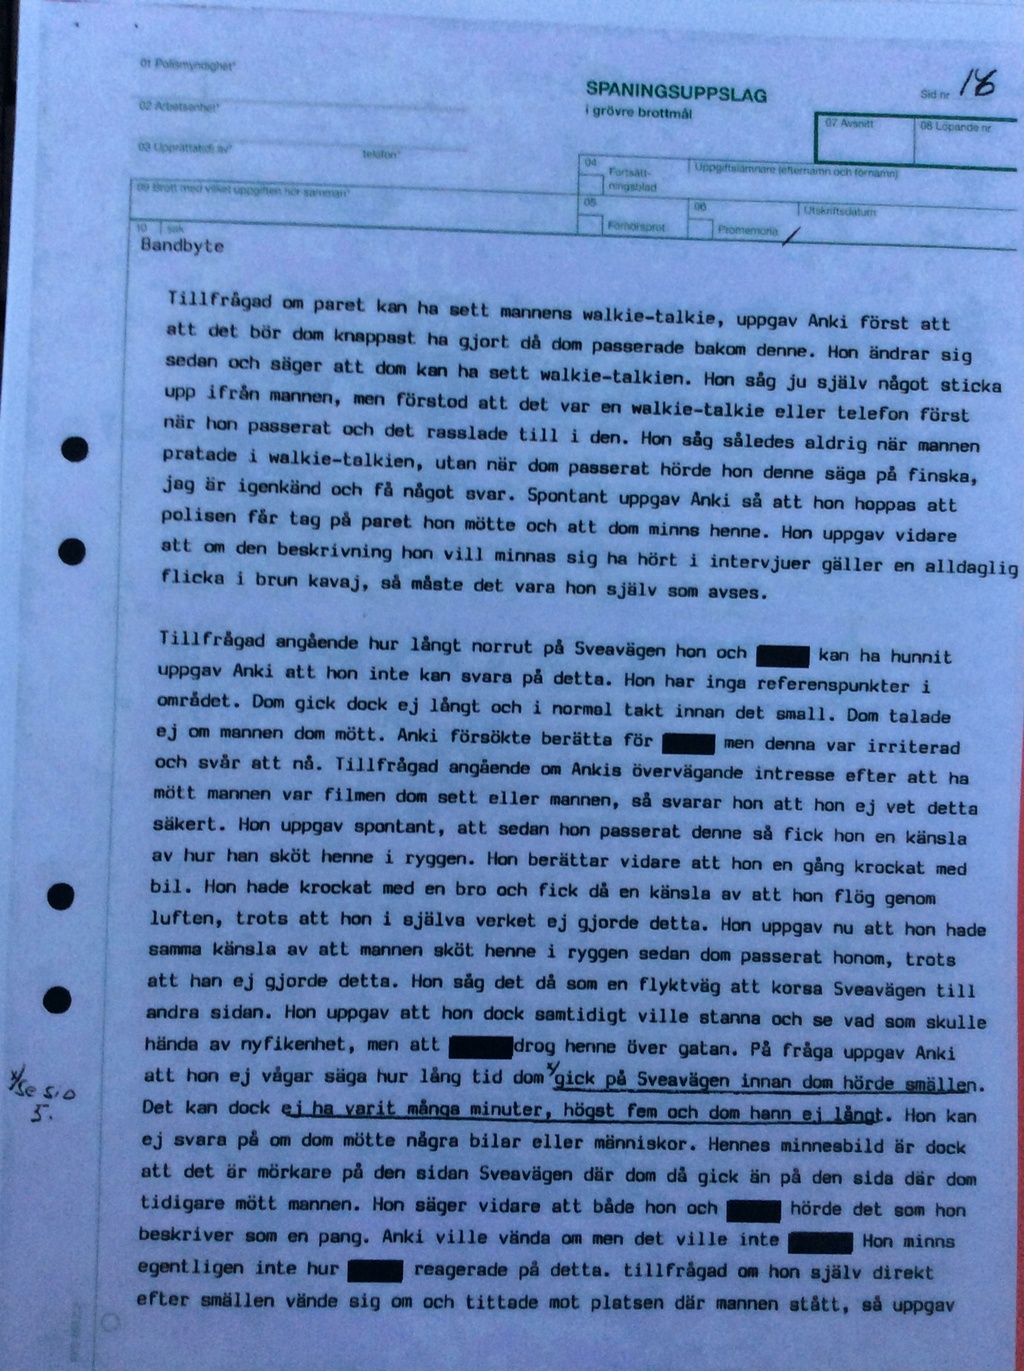 01 Polismyndighet*
SPANINGSUPPSLAG
i grövre brottmål
Sid nr 18
02 Arbetsenhet*
07 Avsnitt
08 Löpande nr
03 Upprättat(d) av*
telefon*
04
Fortsätt-
ningsblad
Uppgiftslämnare (efternamn och förnamn)
09 Brott med vilket uppgiften hör samman*
05
Förhörsprot
06
Promemoria
Utskriftsdatum
10
Bandbyte
Tillfrågad om paret kan ha sett mannens walkie-talkie, uppgav Anki först att
att det bör dom knappast ha gjort då dom passerade bakom denne. Hon ändrar sig
sedan och säger att dom kan ha sett walkie-talkien. Hon såg ju själv något sticka
upp ifrån mannen, men förstod att det var en walkie-talkie eller telefon först
när hon passerat och det rasslade till i den. Hon såg således aldrig när mannen
pratade i walkie-talkien, utan när dom passerat hörde hon denne säga på finska,
jag är igenkänd och få något svar. Spontant uppgav Anki så att hon hoppas att
polisen får tag på paret hon mötte och att dom minns henne. Hon uppgav vidare
att om den beskrivning hon vill minnas sig ha hört i intervjuer gäller en alldaglig
flicka i brun kavaj, så måste det vara hon själv som avses.
Tillfrågad angående hur långt norrut på Sveavägen hon och kan ha hunnit
uppgav Anki att hon inte kan svara på detta. Hon har inga referenspunkter i
området. Dom gick dock ej långt och i normal takt innan det small. Dom talade
ej om mannen dom mött. Anki försökte berätta för men denna var irriterad
och svår att nå. Tillfrågad angående om Ankis övervägande intresse efter att ha
mött mannen var filmen dom sett eller mannen, så svarar hon att hon ej vet detta
säkert. Hon uppgav spontant, att sedan hon passerat denne så fick hon en känsla
av hur han sköt henne i ryggen. Hon berättar vidare att hon en gång krockat med
bil. Hon hade krockat med en bro och fick då en känsla av att hon flög genom
luften, trots att hon i själva verket ej gjorde detta. Hon uppgav nu att hon hade
samma känsla av att mannen sköt henne i ryggen sedan dom passerat honom, trots
att han ej gjorde detta. Hon såg det då som en flyktväg att korsa Sveavägen till
andra sidan. Hon uppgav att hon dock samtidigt ville stanna och se vad som skulle
hända av nyfikenhet, men att drog henne över gatan. På fråga uppgav Anki
att hon ej vågar säga hur lång tid dom gick på Sveavägen innan dom hörde smällen.
Det kan dock ej ha varit många minuter, högst fem och dom hann ej långt. Hon kan
ej svara på om dom mötte några bilar eller människor. Hennes minnesbild är dock
att det är mörkare på den sidan Sveavägen där dom då gick än på den sida där dom
tidigare mött mannen. Hon säger vidare att både hon och hörde det som hon
beskriver som en pang. Anki ville vända om men det ville inte Hon minns
egentligen inte hur reagerade på detta. tillfrågad om hon själv direkt
efter smällen vände sig om och tittade mot platsen där mannen stått, så uppgav